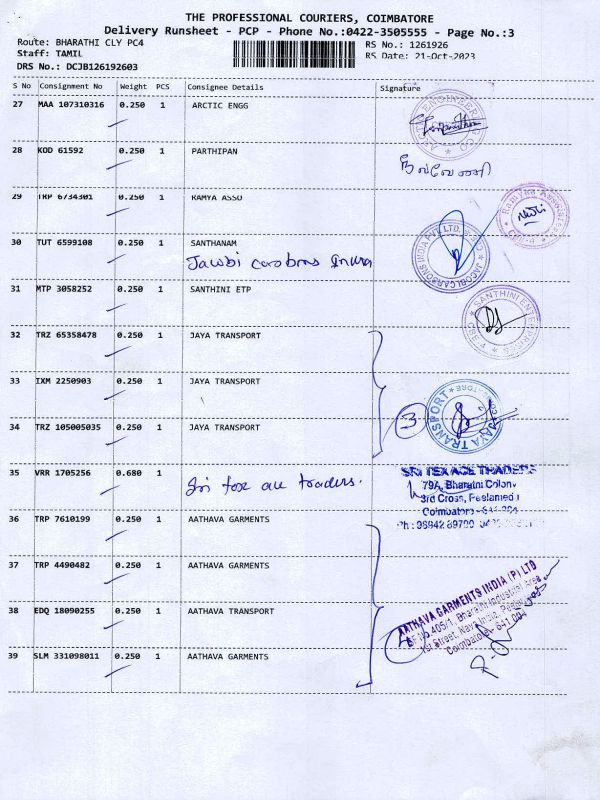 THE PROFESSIONAL COURIERS, COIMBATORE
Delivery Runsheet - PCP - Phone No.:0422-3505555 - Page No.:3
Route: BHARATHI CLY PC4
RS No.: 1261926
Staff: TAMIL
RS Date: 21-Oct-2023
DRS No.: DCJB126192603
S No Consignment No Weight PCS Consignee Details Signature
27 MAA 107310316 0.250 1 ARCTIC ENGG
28 KOD 61592 0.250 1 PARTHIPAN
29 TRP 6734301 0.250 1 RAMYA ASSO
30 TUT 6599108 0.250 1 SANTHANAM
JACOBI CARBONS INDIA PVT. LTD.
31 MTP 3058252 0.250 1 SANTHINI ETP
SANTHINI ENTERPRISES
CBE-4
32 TRZ 65358478 0.250 1 JAYA TRANSPORT
33 IXM 2250903 0.250 1 JAYA TRANSPORT
3
JAYA TRANSPORT
34 TRZ 105005035 0.250 1 JAYA TRANSPORT
35 VRR 1705256 0.680 1
Sri tex ace traders.
SRI TEX ACE TRADERS
79A, Bharathi Colony
3rd Cross, Peelamedu
Coimbatore - 641 004
36 TRP 7610199 0.250 1 AATHAVA GARMENTS
37 TRP 4490482 0.250 1 AATHAVA GARMENTS
38 EDQ 18090255 0.250 1 AATHAVA TRANSPORT
AATHAVA GARMENTS INDIA (P) LTD
SF No 405/1, Bharathi Industrial Area
1st Street, Nava India,
Coimbatore - 641 004
39 SLM 331098011 0.250 1 AATHAVA GARMENTS